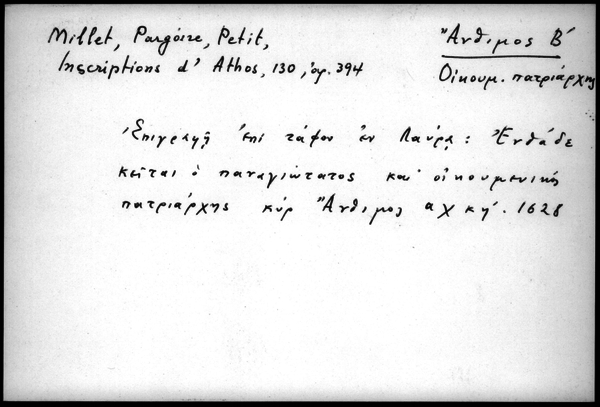 Millet, Pargoire, Petit,
Inscriptions d' Athos, 130, ἀρ. 394
Ἄνθιμος Β΄
Οἰκουμ. πατριάρχης
Ἐπιγραφὴ ἐπὶ τάφου ἐν Λαύρᾳ: Ἐνθάδε
κεῖται ὁ παναγιώτατος καὶ οἰκουμενικὸς
πατριάρχης κύρ Ἄνθιμος αχκη΄. 1628